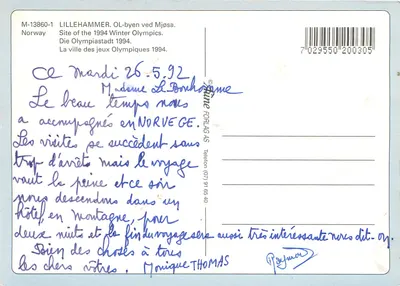 M-13860-1 LILLEHAMMER. OL-byen ved Mjøsa.
Norway Site of the 1994 Winter Olympics.
Die Olympiastadt 1994.
La ville des jeux Olympiques 1994.
7029550200305
Ce Mardi 26-5.92
Madame Le Bonhomme
Le beau temps nous
a accompagnés en NORVEGE.
Les visites se succèdent sans
trop d'arrêts mais le voyage
vaut la peine et ce soir
nous descendons dans un
hôtel en montagne, pour
deux nuits et la fin du voyage sera aussi très intéressante nous dit-on.
Bien des choses à tous
les chers vôtres. Monique THOMAS
FORLAG AS
Telefon (07) 91 65 40